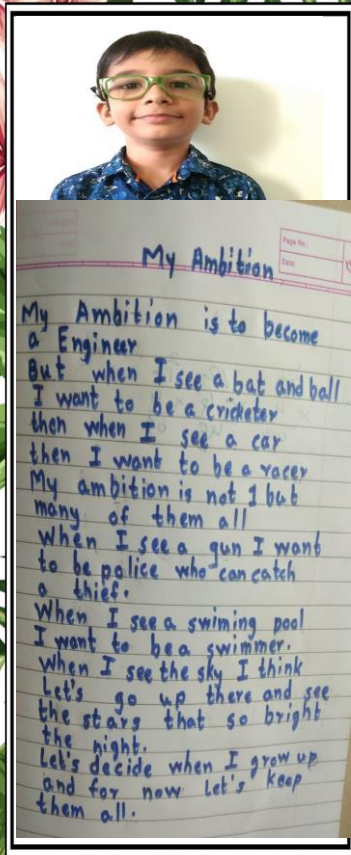 Page No.:
Date:
My Ambition
My Ambition is to become
a Engineer
But when I see a bat and ball
I want to be a cricketer
then when I see a car
then I want to be a racer
My ambition is not 1 but
many of them all
When I see a gun I want
to be police who can catch
a thief.
When I see a swiming pool
I want to be a swimmer.
When I see the sky I think
Let's go up there and see
the stars that so bright
the night.
Let's decide when I grow up
and for now let's keep
them all.